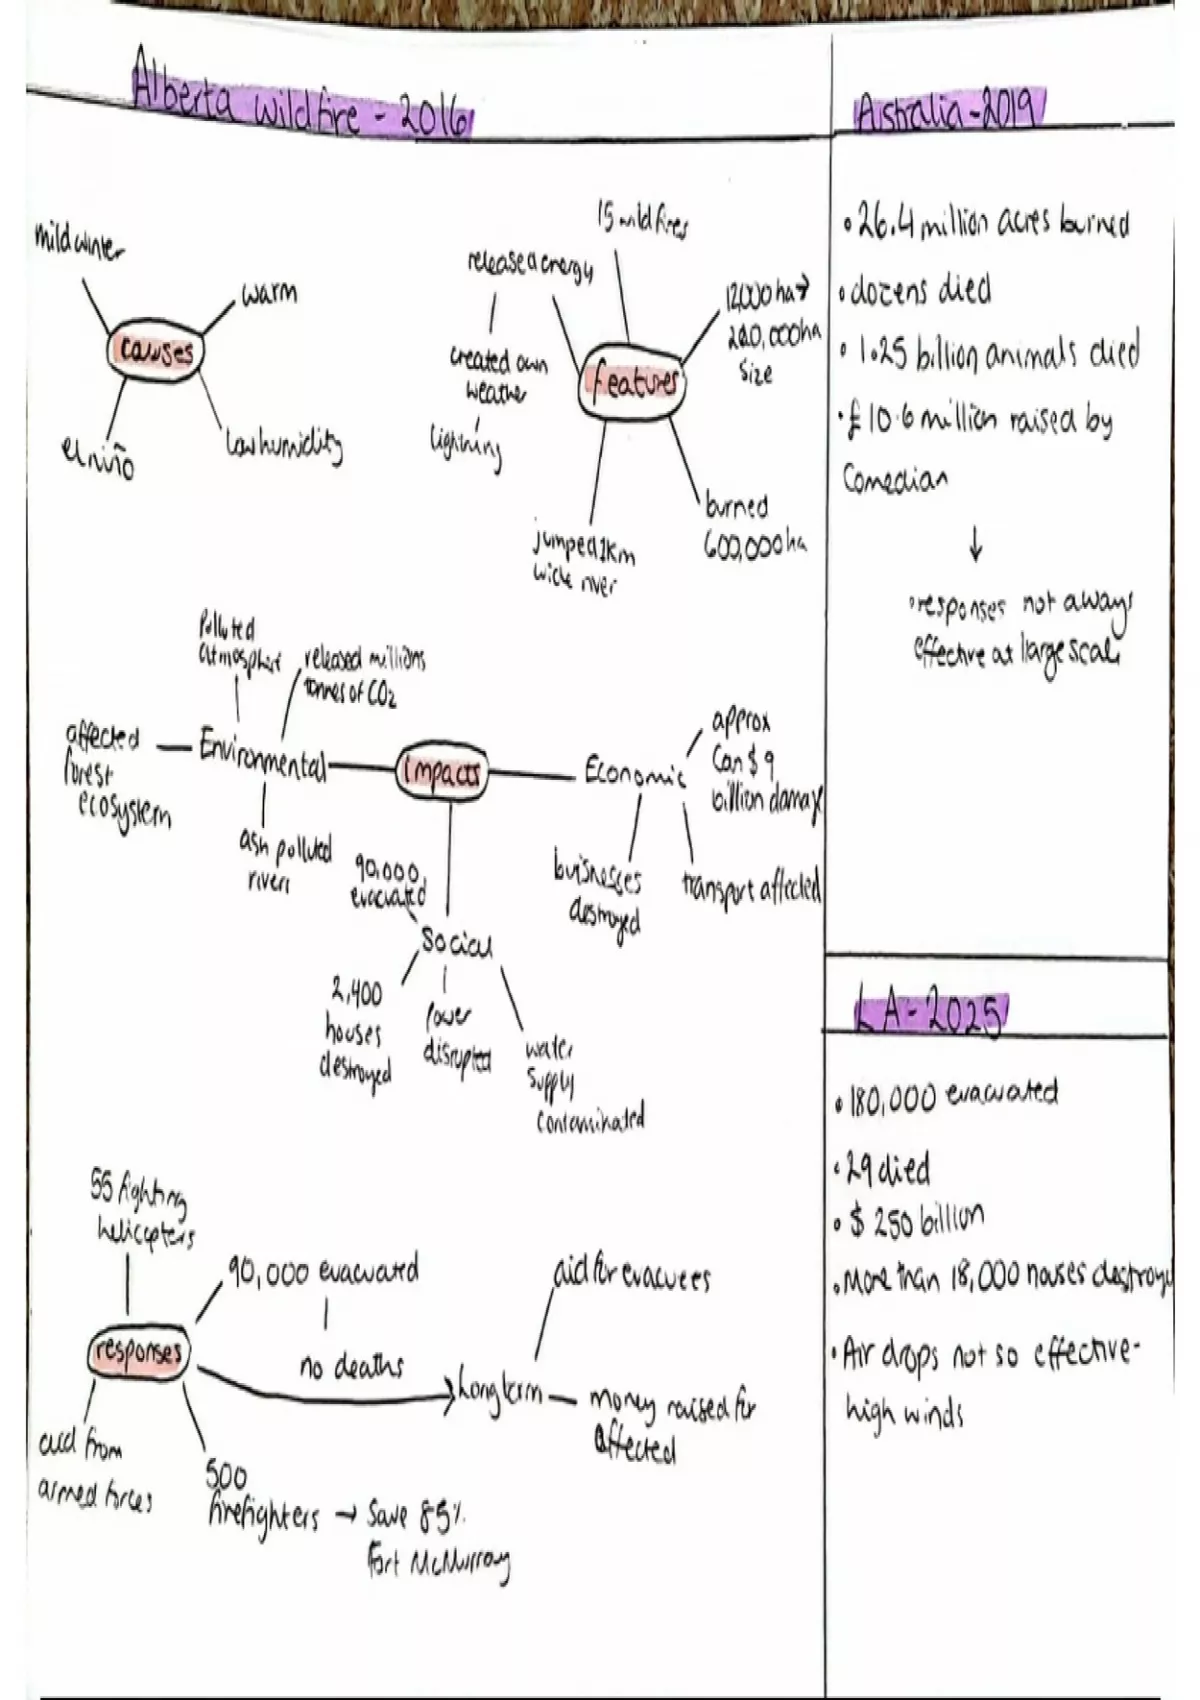 Alberta wildfire - 2016
mild winter
warm
causes
el niño
low humidity
15 wildfires
released energy
created own
weather
lightning
12,000 ha →
220,000 ha
size
features
jumped 1km
wide river
burned
600,000 ha
Polluted
atmosphere
released millions
tonnes of CO2
affected
forest
ecosystem
Environmental
ash polluted
rivers
impacts
Economic
approx
Can $ 9
billion damage
businesses
destroyed
transport affected
90,000
evacuated
Social
2,400
houses
destroyed
Power
disrupted
water
supply
contaminated
55 fighting
helicopters
90,000 evacuated
no deaths
responses
aid from
armed forces
500
firefighters → Save 85%
Fort McMurray
Long term
aid for evacuees
money raised for
affected
Astralia - 2019
• 26.4 million acres burned
• dozens died
• 1.25 billion animals died
• £10.6 million raised by
Comedian
↓
• responses not aways
effective at large scale
LA - 2025
• 180,000 evacuated
• 29 died
• $ 250 billion
• More than 18,000 houses destroyed
• Air drops not so effective -
high winds